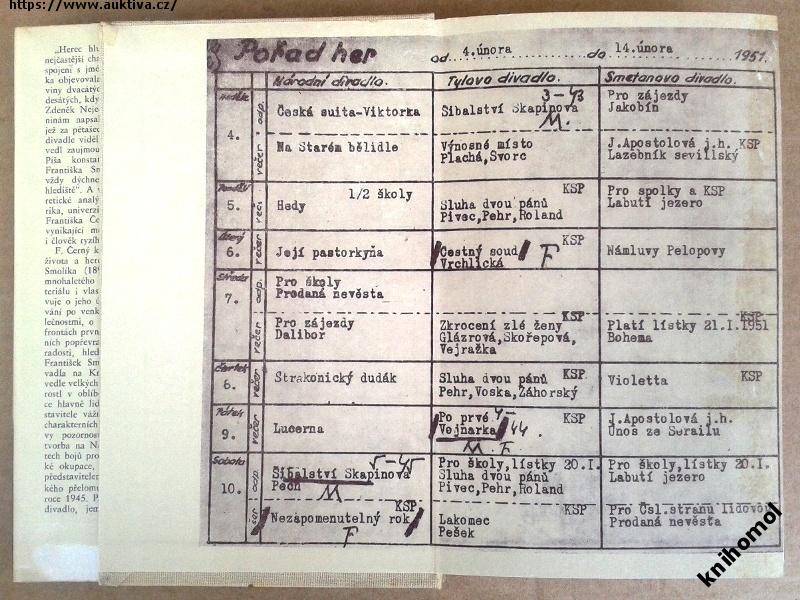 https://www.auktiva.cz/
„Herec hlu
nejčastější cha
spojení s jmé
ka objevovala
viny dvacátýc
desátých, kdy
Zdeněk Neje
ninám napsal
jež za pětašec
divadle viděl
vedl zaujmou
Píša konstat
Františka Sm
vždy dýchne
hlediště". A v
retické analý
rika, univerzi
Františka Če
vynikající me
i člověk ryzíh
F. Černý k
života a here
Smolíka (189
mnohaletého
teriálu i vlas
vuje o jeho ú
vání po venk
lečnostmi, o
frontách první
ních popřevra
radosti, hled
František Sm
vadla na Kr
vedle velkých
rostl v oblíbe
ce hlavně lid
stavitele váži
charakterních
vy pozornost
tvorba na Ná
tech bojů pro
ké okupace,
představitelem
kého přelomu
roce 1945. P
divadlo, jem
Pořad her od 4.února do 14.února 1951.
Národní divadlo. Tylovo divadlo. Smetanovo divadlo.
Neděle 4. odp. Česká suita-Viktorka
3-43
Sibalství Skapinova
M.
Pro zájezdy
Jakobín
večer Na Starém bělidle
Výnosné místo
Plachá,Svorc
J.Apostolová j.h. KSP
Lazebník sevillský
5. 1/2 školy
Hedy
KSP
Sluha dvou pánů
Pivec,Pehr,Roland
Pro spolky a KSP
Labutí jezero
Úterý 6. večer Její pastorkyňa
KSP
Čestný soud
Vrchlická
F
Námluvy Pelopovy
Středa 7. odp. Pro školy
Prodaná nevěsta
večer Pro zájezdy
Dalibor
KSP
Zkrocení zlé ženy
Glázrová,Skořepová,
Vejražka
KSP
Platí lístky 21.I.1951
Bohema
Čtvrtek 6. večer Strakonický dudák
Sluha dvou pánů KSP
Pehr,Voska,Záhorský
Violetta KSP
Pátek 9. večer Lucerna
Po prvé 4- KSP
Vojnarka 44.
M. F.
J.Apostolová j.h.
Únos ze Serailu
Sobota 10. odp. 5-45
Sibalství Skapinova
Pech
M
Pro školy,lístky 20.I.
Sluha dvou pánů
Pivec,Pehr,Roland
Pro školy,lístky 20.I.
Labutí jezero
KSP
Nezapomenutelný rok
F
KSP
Lakomec
Pešek
Pro Čsl.stranu lidovou
Prodaná nevěsta
knihomol